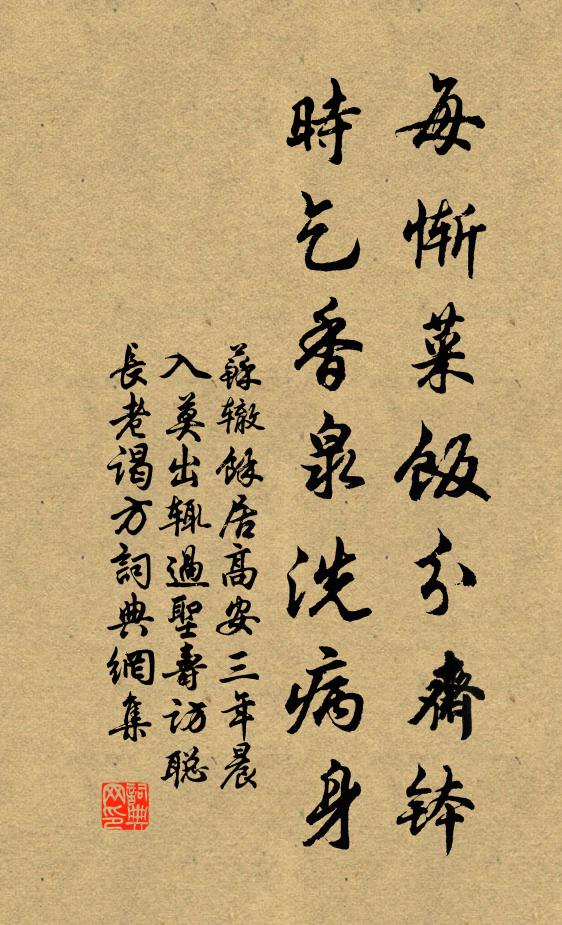 每慚菜飯分齋鉢
時乞香泉洗病身
蘇轍餘居高安三年晨
入莫出輒過聖壽訪聡
長老謁方詞典網集
詞典网印